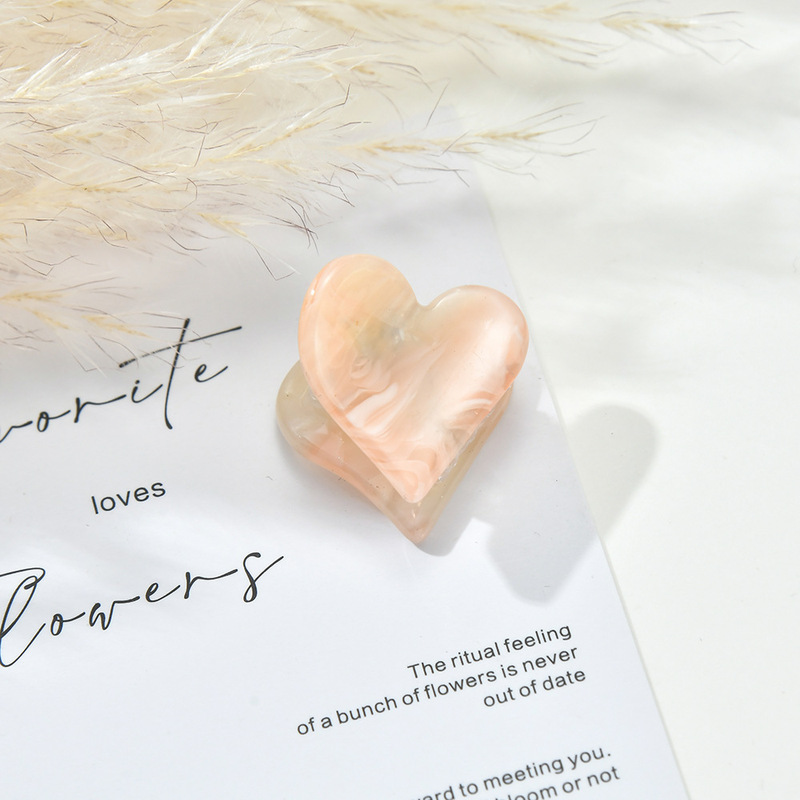 vorite
loves
lowers
The ritual feeling
of a bunch of flowers is never
out of date
ard to meeting you.
bloom or not